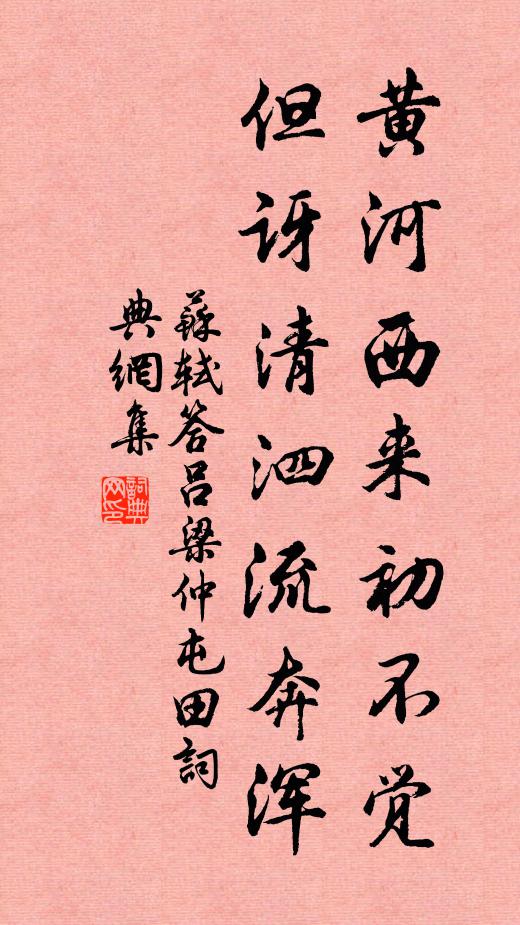 黄河西来初不觉
但讶清泗流奔浑
蘇軾答呂梁仲屯田詞
典網集
詞典網印